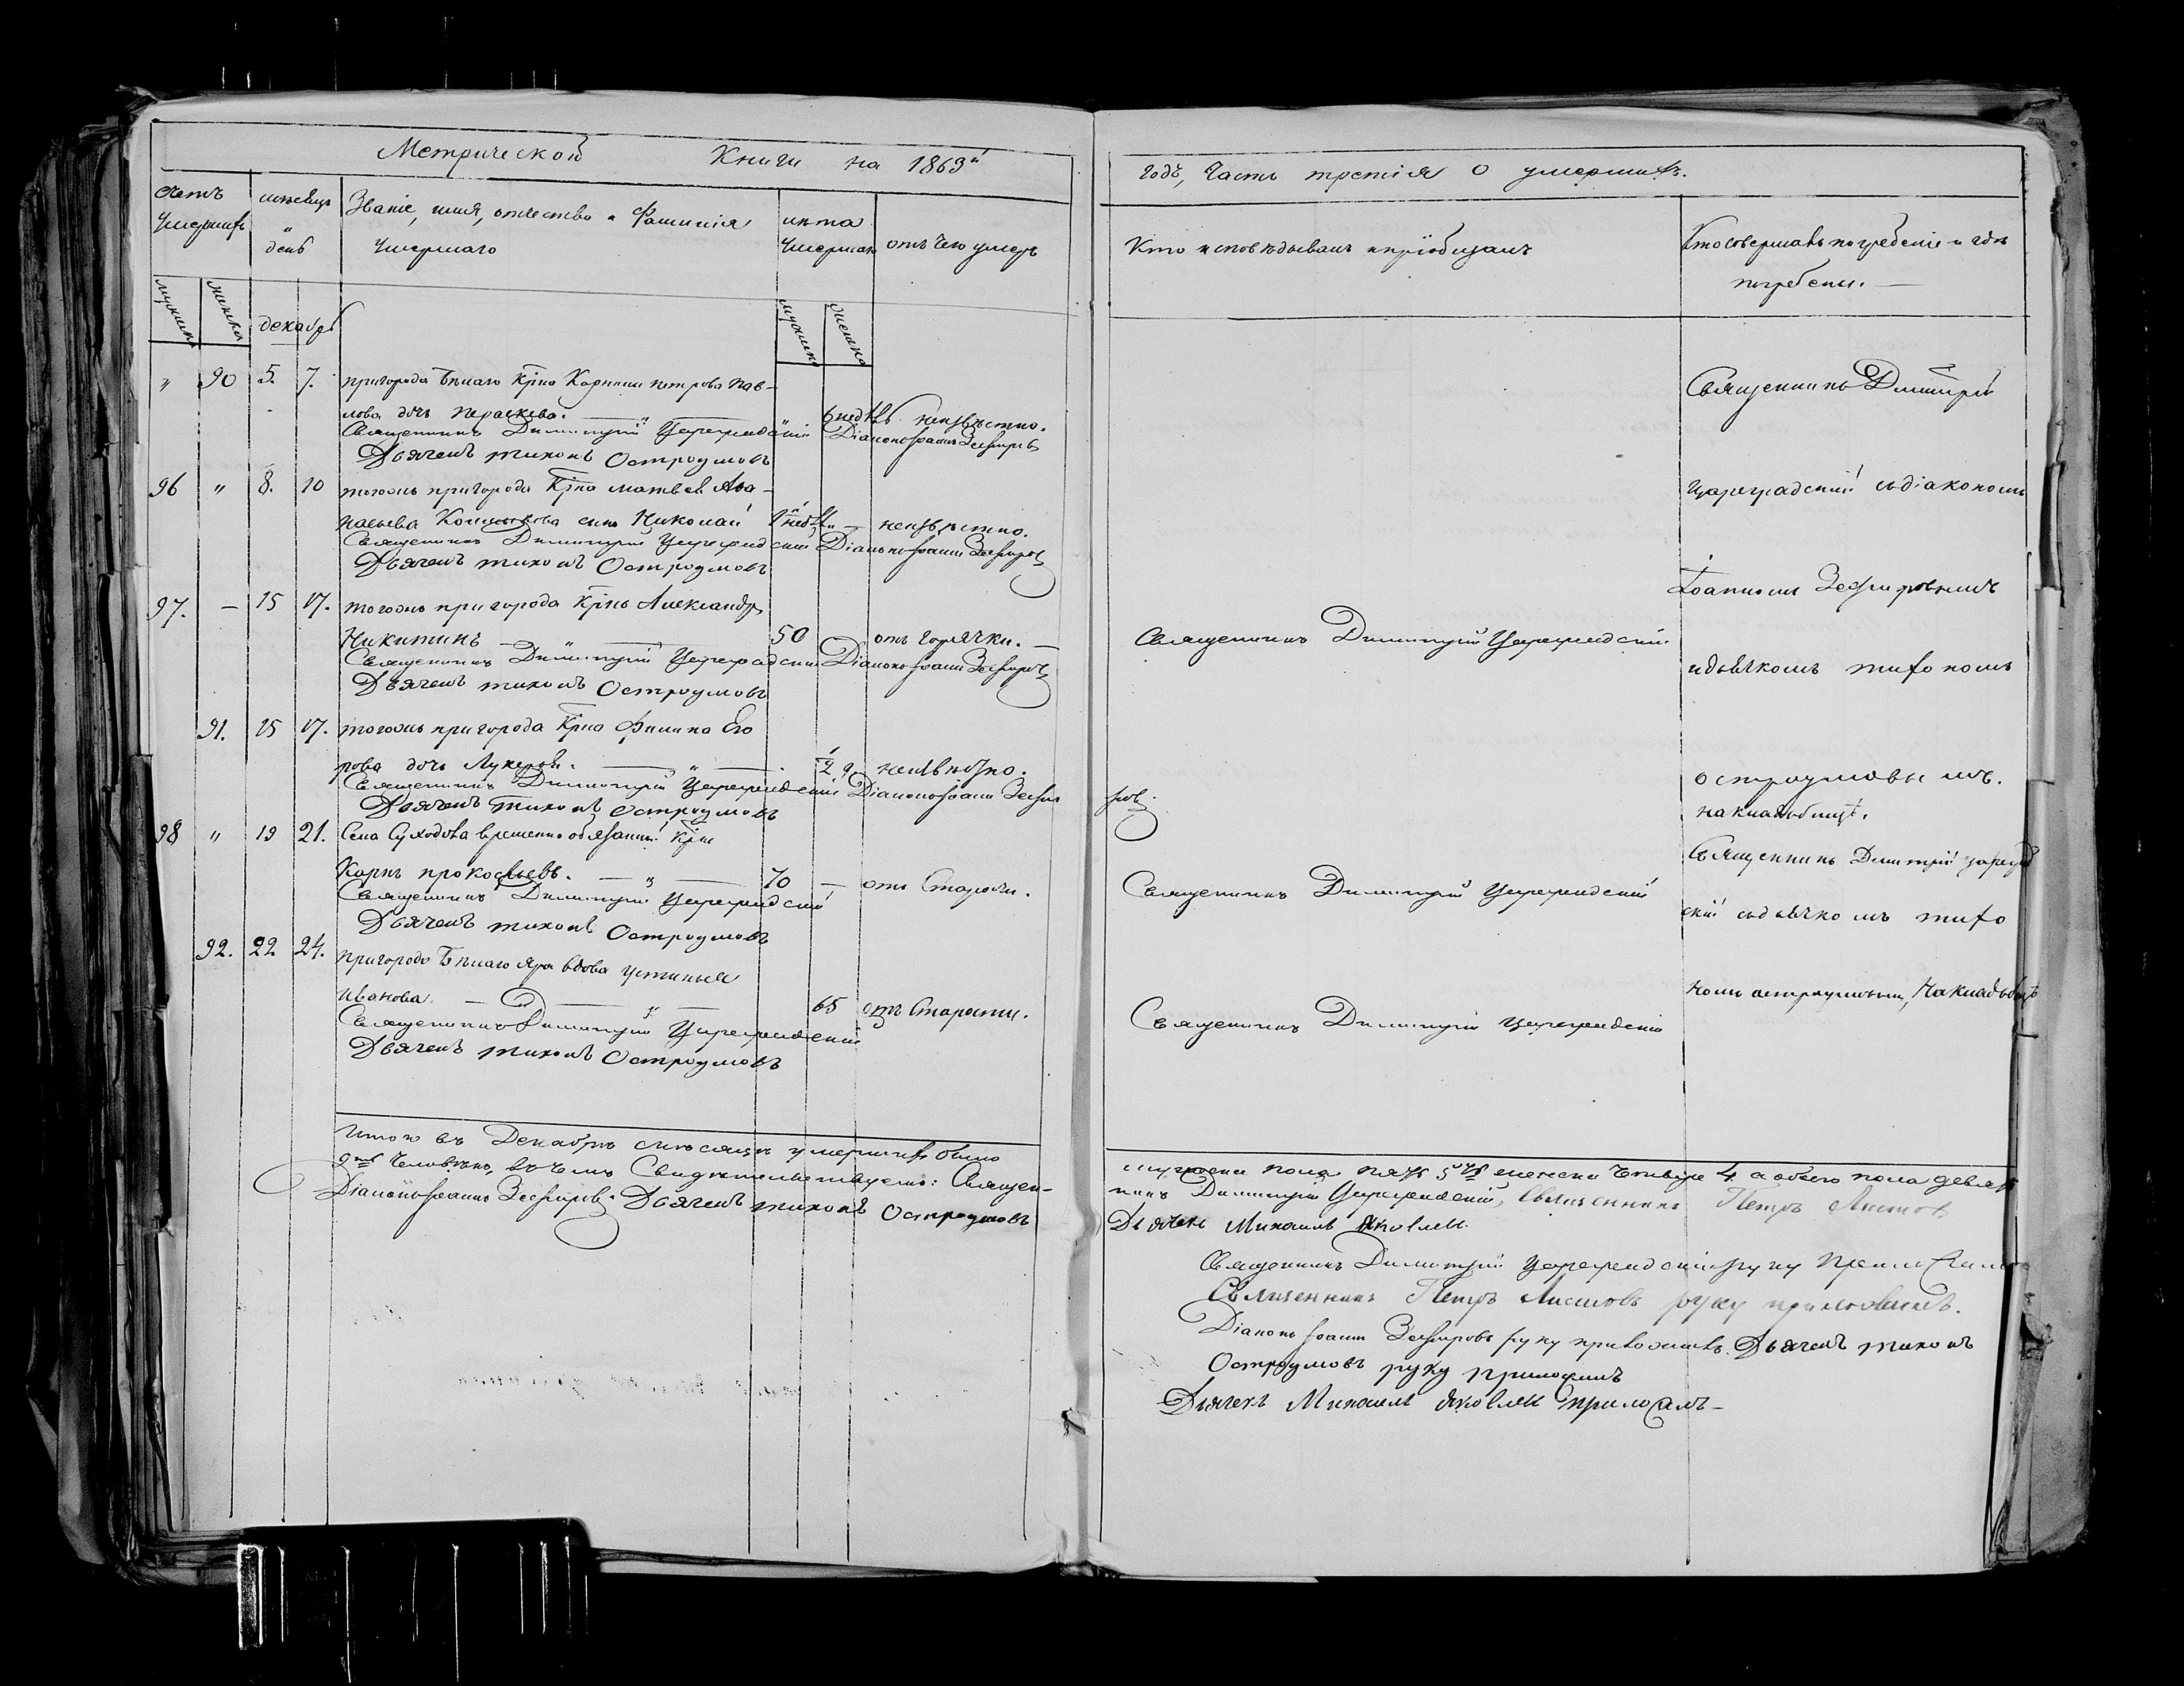 Метрической Книги на 1863й
Счетъ умершихъ
мѣсяцъ и день
Званіе, имя, отчество и Фамилія
Умершаго
лѣта
Умершаго
отъ чего умеръ
мужеска
женска
декабрь
мужеска
женска
„ 90 5. 7. пригорода Бѣлаго Кр̃на Карпина петрова Пав-
лова дочь Параскева. — „ — „ 6 недѣль неизвѣстно.
Священникъ Димитрій Цареградскій Діаконъ Іоаннъ Зефировъ
Дьячекъ тихонъ Остроумовъ
96 „ 8. 10 тогожъ пригорода Кр̃на матвѣя Ава-
насьева сынъ Николай нед. — неизвѣстно.
Священникъ Димитрій Цареградскій Діаконъ Іоаннъ Зефировъ
Дьячекъ тихонъ Остроумовъ
97. — 15 17. тогожъ пригорода Кр̃нъ Александръ
Никитинъ — „ — 50 отъ горячки. —
Священникъ Димитрій Цареградскій Діаконъ Іоаннъ Зефировъ
Дьячекъ тихонъ Остроумовъ
91. 15 17. тогожъ пригорода Кр̃на Филипа Его
рова дочь Лукерья. — „ — неизвѣстно.
Священникъ Димитрій Цареградскій Діаконъ Іоаннъ Зефи
Дьячекъ тихонъ Остроумовъ
98 „ 19 21. Села Суходола временно обязанный Кр̃нъ
Карпъ прокофьевъ. — „ — 70 — отъ Старости.
Священникъ Димитрій Цареградскій
Дьячекъ тихонъ Остроумовъ
92. 22 24. пригорода Бѣлаго яра вдова устинья
Иванова — „ — 65 отъ Старости.
Священникъ Димитрій Цареградскій
Дьячекъ тихонъ Остроумовъ
Итого въ Декабрѣ мѣсяцѣ умершихъ было
9ть Человѣкъ, въ чемъ Свидѣтельствуемъ: Священ-
Діаконъ Іоаннъ Зефировъ. Дьячекъ тихонъ Остроумовъ
годъ, Часть третія о умершихъ.
Кто исповѣдывалъ и пріобщалъ
Кто совершалъ погребеніе и гдѣ
погребены. —
Священникъ Димитрій
Цареградскій съ діакономъ
Іоанномъ Зефировымъ
Священникъ Димитрій Цареградскій
и дьячкомъ тихономъ
ровъ.
остроумовымъ.
на кладбищѣ.
Священникъ Димитрій цареград
Священникъ Димитрій Цареградскій
скій съ дьячкомъ тихо
номъ остроумовымъ, На кладбищѣ
Священникъ Димитрій Цареградскій
мужеска пола пять 5ть женска Четыре 4 а обоего пола девять
никъ Димитрій Цареградскій, Священникъ Петръ Листовъ
Дьячекъ Михаилъ Яковлевъ
Священникъ Димитрій Цареградскій руку приложилъ
Священникъ Петръ Листовъ руку приложилъ.
Діаконъ Іоаннъ Зефировъ руку приложилъ. Дьячекъ тихонъ
Остроумовъ руку приложилъ
Дьячекъ Михаилъ Яковлевъ приложилъ —